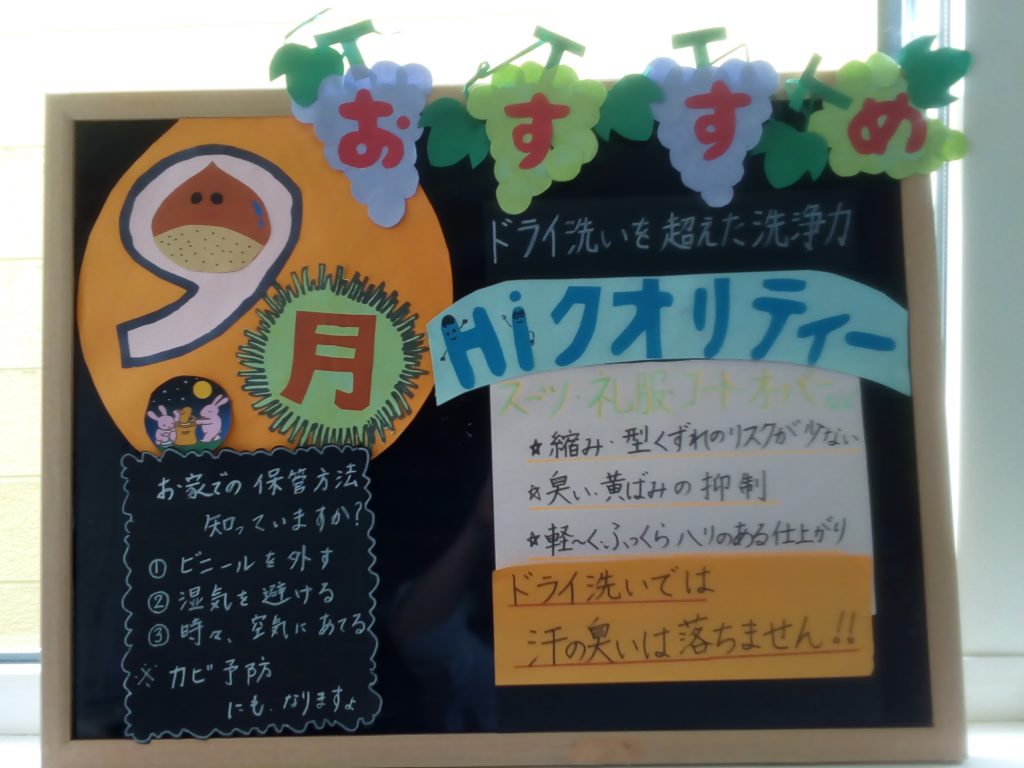 おすすめ
9月
ドライ洗いを超えた洗浄力
Hiクオリティー
スーツ・礼服・コート・オーバーなど
☆縮み・型くずれのリスクが少ない
☆臭い・黄ばみの抑制
☆軽~く、ふっくらハリのある仕上がり
ドライ洗いでは
汗の臭いは落ちません!!
お家での保管方法
知っていますか?
① ビニールを外す
② 湿気を避ける
③ 時々、空気にあてる
※ カビ予防
にも、なりますよ